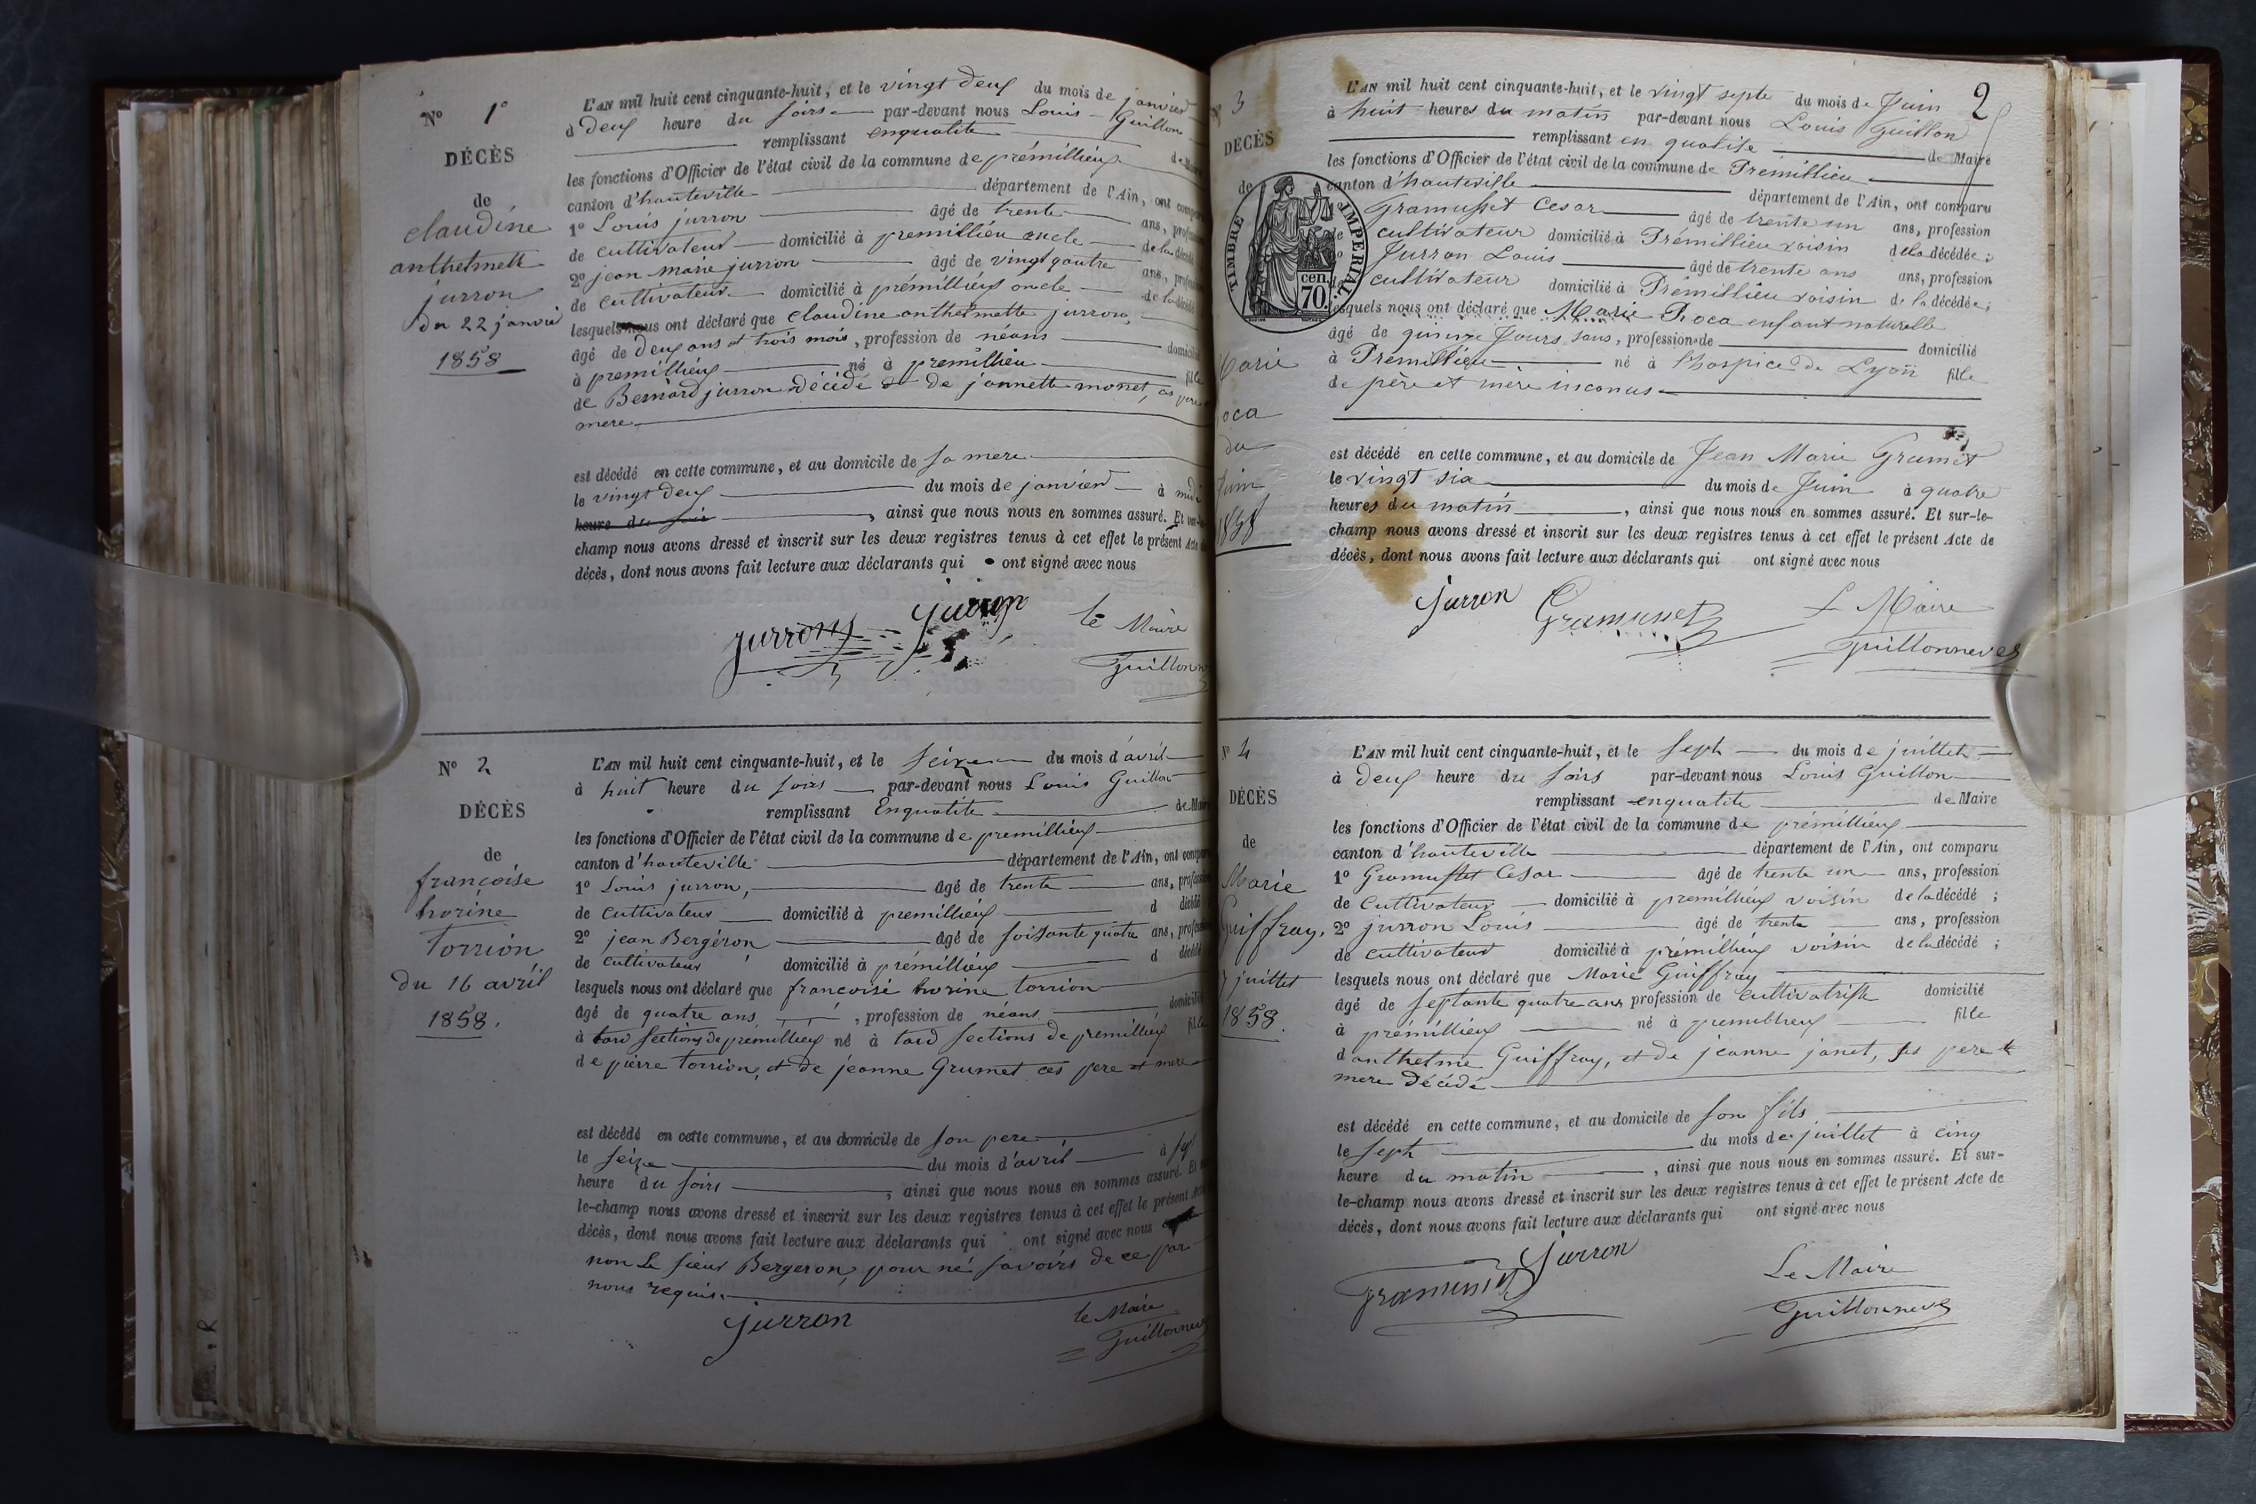 N° 1°
DÉCÈS
de
claudine
anthelmette
jurron
du 22 janvier
1858
L'AN mil huit cent cinquante-huit, et le vingt deux du mois de janvier
à deux heure du soirs par-devant nous Louis Guillon
remplissant enqualité de Maire
les fonctions d'Officier de l'état civil de la commune de prémillieux
canton d'hauteville département de l'Ain, ont comparu
1° Louis jurron âgé de trente ans, profession
de cultivateur domicilié à premillieu oncle de la décédé
2° jean marie jurron âgé de vingt quatre ans, profession
de cultivateur domicilié à prémillieux oncle de la décédé
lesquels nous ont déclaré que claudine anthelmette jurron,
âgé de deux ans et trois mois, profession de néans domicilié
à premillieux né à premillieu fille
de Bernard jurron décédé et de jannette monet, ces pere
mere
est décédé en cette commune, et au domicile de sa mere
le vingt deux du mois de janvier à midi
heure du soir, ainsi que nous nous en sommes assuré. Et sur-le-
champ nous avons dressé et inscrit sur les deux registres tenus à cet effet le présent Acte de
décès, dont nous avons fait lecture aux déclarants qui ont signé avec nous
jurron jurron le Maire
Guillonn
N° 2
DÉCÈS
de
françoise
horine
Torrion
du 16 avril
1858.
L'AN mil huit cent cinquante-huit, et le seize du mois d'avril
à huit heure du soirs par-devant nous Louis Guillon
remplissant Enqualité de Maire
les fonctions d'Officier de l'état civil de la commune de premillieux
canton d'hauteville département de l'Ain, ont comparu
1° Louis jurron, âgé de trente ans, profession
de cultivateur domicilié à premillieux d décédé
2° jean Bergéron âgé de soisante quatre ans, profession
de cultivateur domicilié à prémillieux d décédé
lesquels nous ont déclaré que francoise horine torrion
âgé de quatre ans, profession de néans domicilié
à tard sections de prémillieux né à tard sections de premillieux fille
de pierre torrion, et de jéanne Grumet ces pere et mere
est décédé en cette commune, et au domicile de son pere
le seize du mois d'avril à sept
heure du soirs, ainsi que nous nous en sommes assuré. Et sur-
le-champ nous avons dressé et inscrit sur les deux registres tenus à cet effet le présent Acte
décès, dont nous avons fait lecture aux déclarants qui ont signé avec nous
non Le sieur Bergeron, pour né savoirs de ce par
nous requis.
jurron le Maire
Guillonneve
2
3
DÉCÈS
de
Marie
oca
du
Juin
1858
TIMBRE IMPERIAL
70 cen.
L'AN mil huit cent cinquante-huit, et le vingt septe du mois de Juin
à huit heures du matin par-devant nous Louis Guillon
remplissant en qualité de Maire
les fonctions d'Officier de l'état civil de la commune de Premillieu
canton d'hauteville département de l'Ain, ont comparu
Gramusset Cesar âgé de trente un ans, profession
de cultivateur domicilié à Prémillieu voisin de la décédée;
Jurron Louis âgé de trente ans ans, profession
cultivateur domicilié à Prémillieu voisin de la décédée;
lesquels nous ont déclaré que Marie Roca enfant naturelle
âgé de quinze Jours sans, profession de domicilié
à Premillieu né à l'hospice de Lyon fille
de père et mère inconus
est décédé en cette commune, et au domicile de Jean Marie Grumet
le vingt six du mois de Juin à quatre
heures du matin, ainsi que nous nous en sommes assuré. Et sur-le-
champ nous avons dressé et inscrit sur les deux registres tenus à cet effet le présent Acte de
décès, dont nous avons fait lecture aux déclarants qui ont signé avec nous
jurron Gramusset L Maire
Guillonneves
N° 4
DÉCÈS
de
Marie
Guiffray,
7 juillet
1858.
L'AN mil huit cent cinquante-huit, et le sept du mois de juillet
à deux heure du soirs par-devant nous Louis Guillon
remplissant enqualité de Maire
les fonctions d'Officier de l'état civil de la commune de prémillieux
canton d'hauteville département de l'Ain, ont comparu
1° Gramusset Cesar âgé de trente un ans, profession
de cultivateur domicilié à premillieux voisin de la décédé;
2° jurron Louis âgé de trente ans, profession
de cultivateur domicilié à prémillieux voisin de la décédé;
lesquels nous ont déclaré que Marie Guiffray
âgé de septante quatre ans profession de cultivatrise domicilié
à prémillieux né à premillieux fille
d'anthelme Guiffray, et de jeanne janet, ses pere et
mere décédé
est décédé en cette commune, et au domicile de son fils
le sept du mois de juillet à cinq
heure du matin, ainsi que nous nous en sommes assuré. Et sur-
le-champ nous avons dressé et inscrit sur les deux registres tenus à cet effet le présent Acte de
décès, dont nous avons fait lecture aux déclarants qui ont signé avec nous
Gramusset jurron Le Maire
Guillonneves